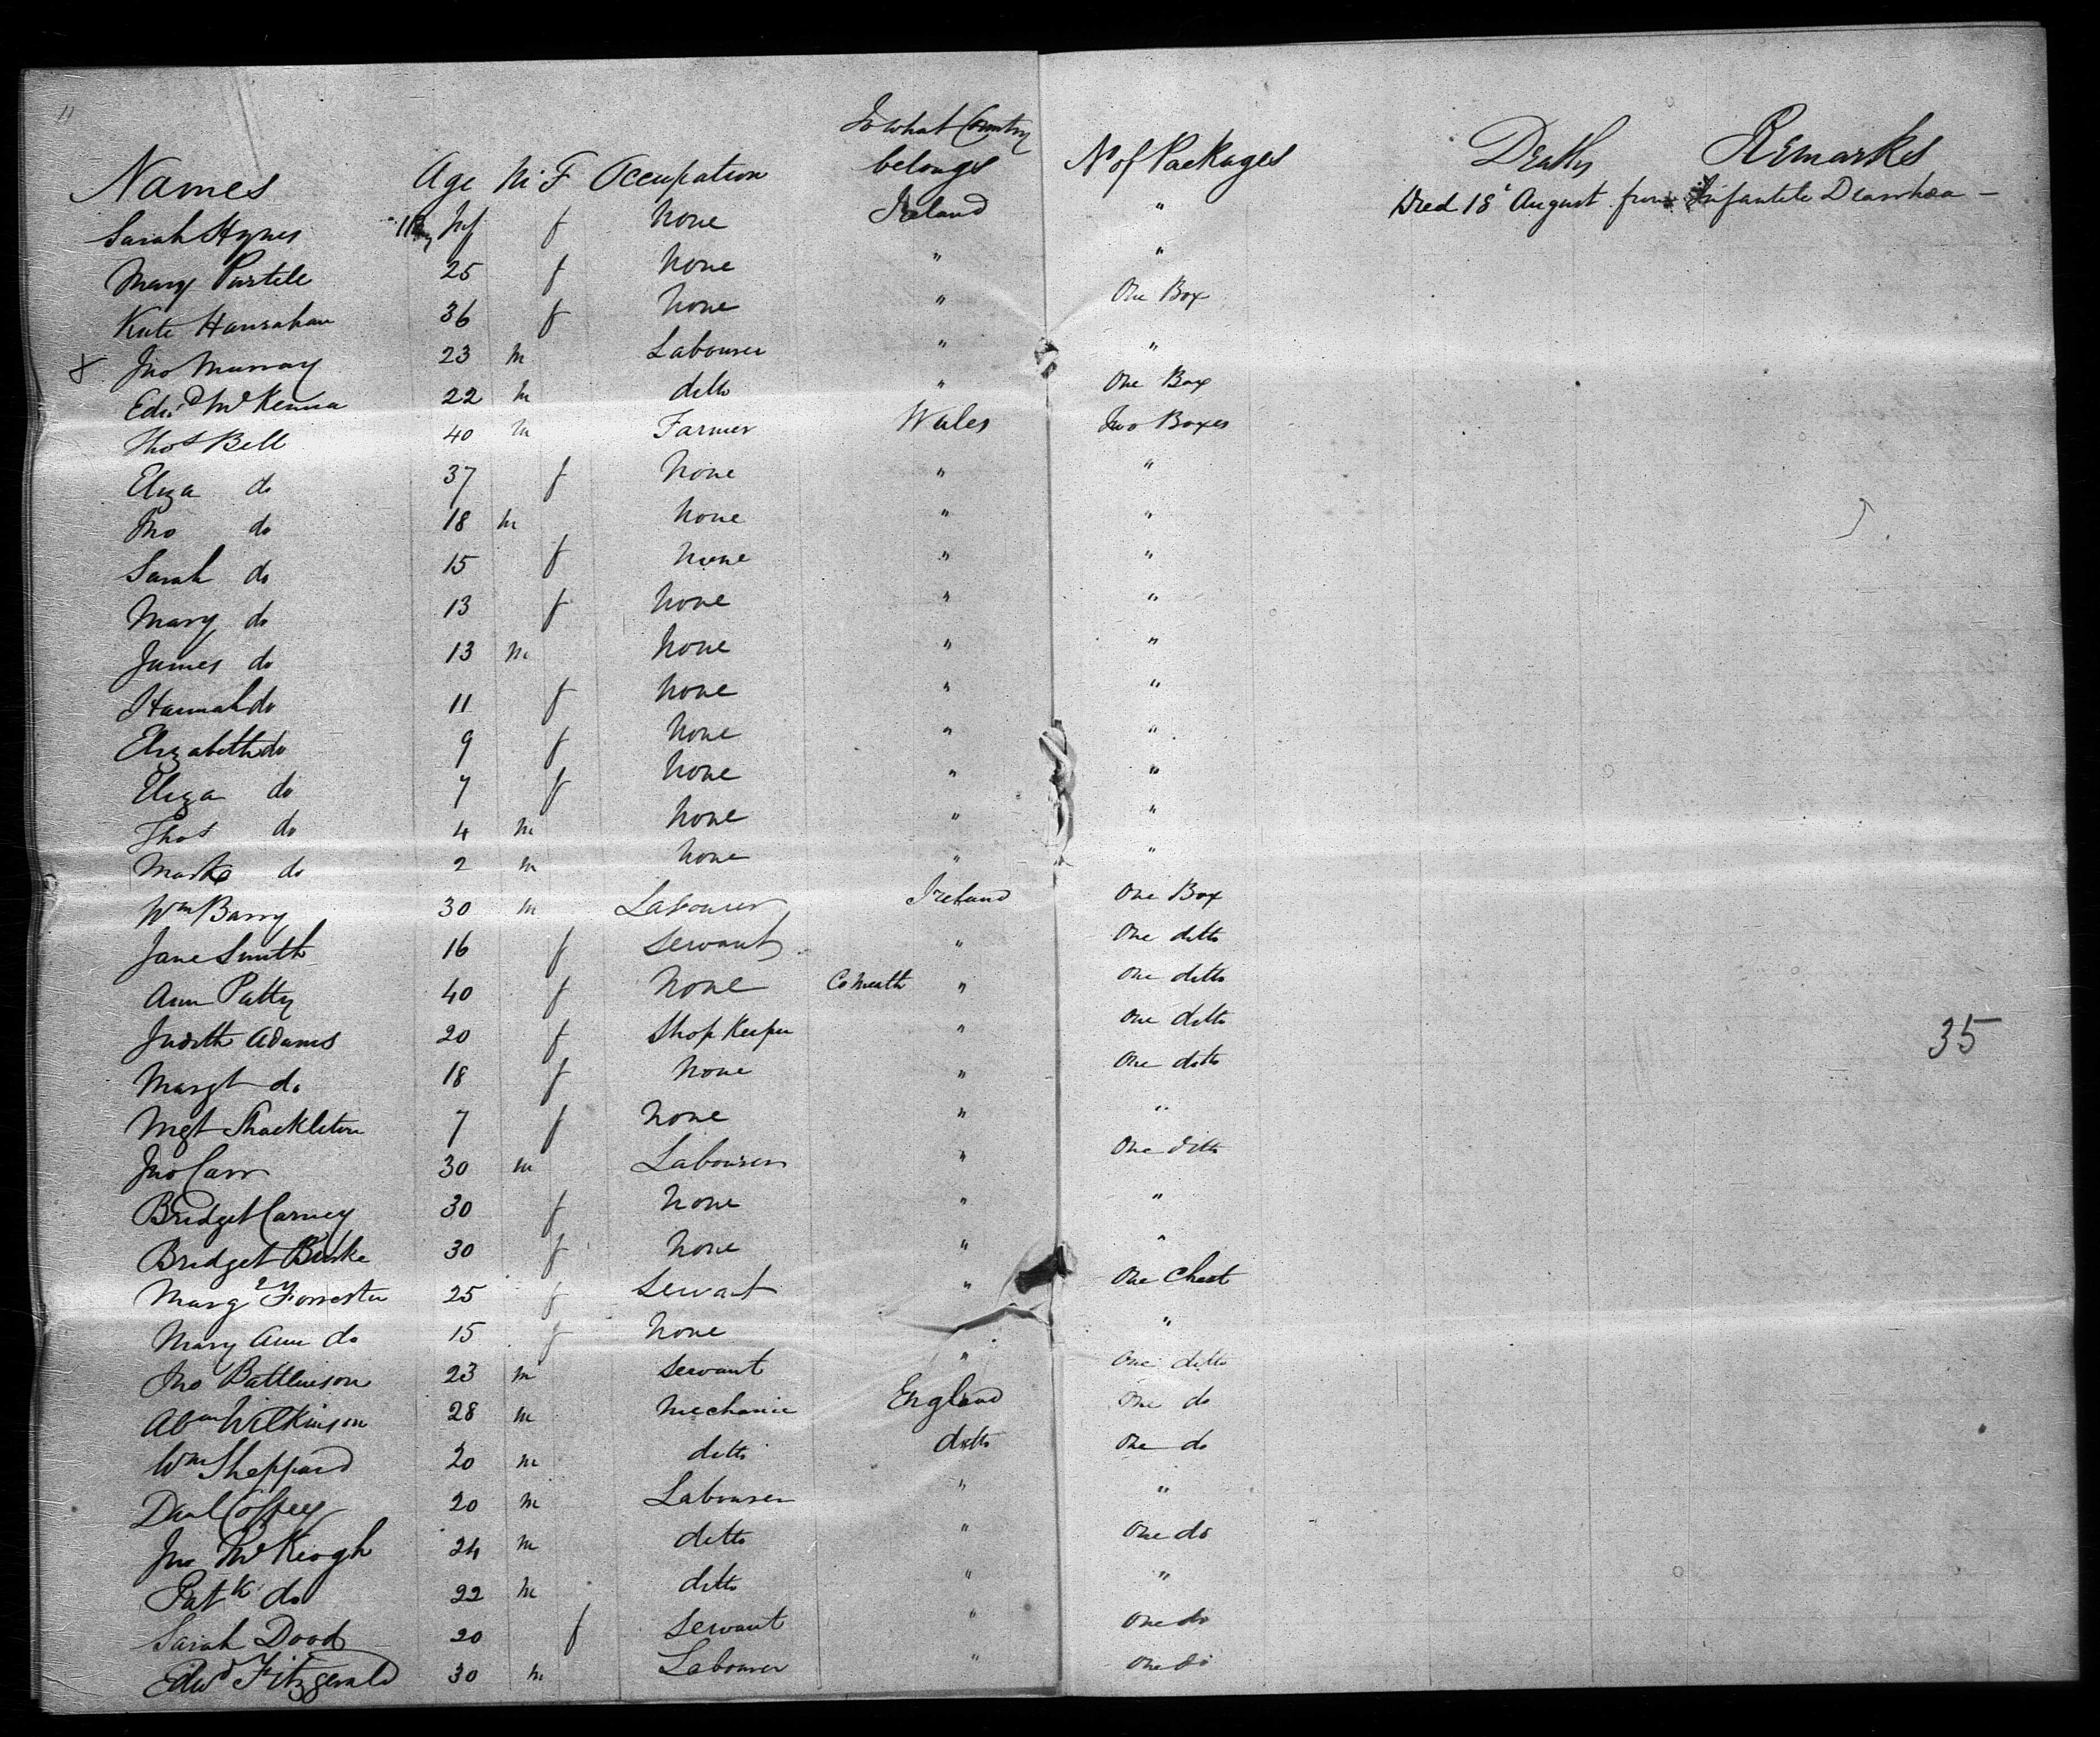 11
Names Age M F Occupation To what Country belongs No of Packages Deaths Remarks
Sarah Hynes Inf f None Ireland " Died 18 August from Infantile Diarrhœa —
Mary Purtile 25 f None " "
Kate Hanrahan 36 f None " One Box
x Jno Murray 23 m Labourer " "
Edwd McKenna 22 m ditto " One Box
Thos Bell 40 m Farmer Wales Two Boxes
Eliza do 37 f None " "
Jno do 18 m None " "
Sarah do 15 f None " "
Mary do 13 f None " "
James do 13 m None " "
Hannah do 11 f None " "
Elizabeth do 9 f None " "
Eliza do 7 f None " "
Thos do 4 m None " "
Mark do 2 m None " "
Wm Barry 30 m Labourer Ireland One Box
Jane Smith 16 f Servant " One ditto
Ann Patty 40 f None Co Meath " One ditto
Judith Adams 20 f Shop Keeper " One ditto
Margt do 18 f None " One ditto
35
Mgt Shackleton 7 f None " "
Jno Carr 30 m Labourer " One ditto
Bridget Carney 30 f None " "
Bridget Burke 30 f None " "
Margt Forrester 25 f Servant " One Chest
Mary Ann do 15 f None " "
Jno Battleuson 23 m Servant " One ditto
Abm Wilkinson 28 m Mechanic England One do
Wm Sheppard 20 m ditto ditto One do
Danl Coffey 20 m Labourer " "
Jno McKeogh 24 m ditto " One do
Patk do 22 m ditto " "
Sarah Dood 20 f Servant " One do
Edwd Fitzgerald 30 m Labourer " One do